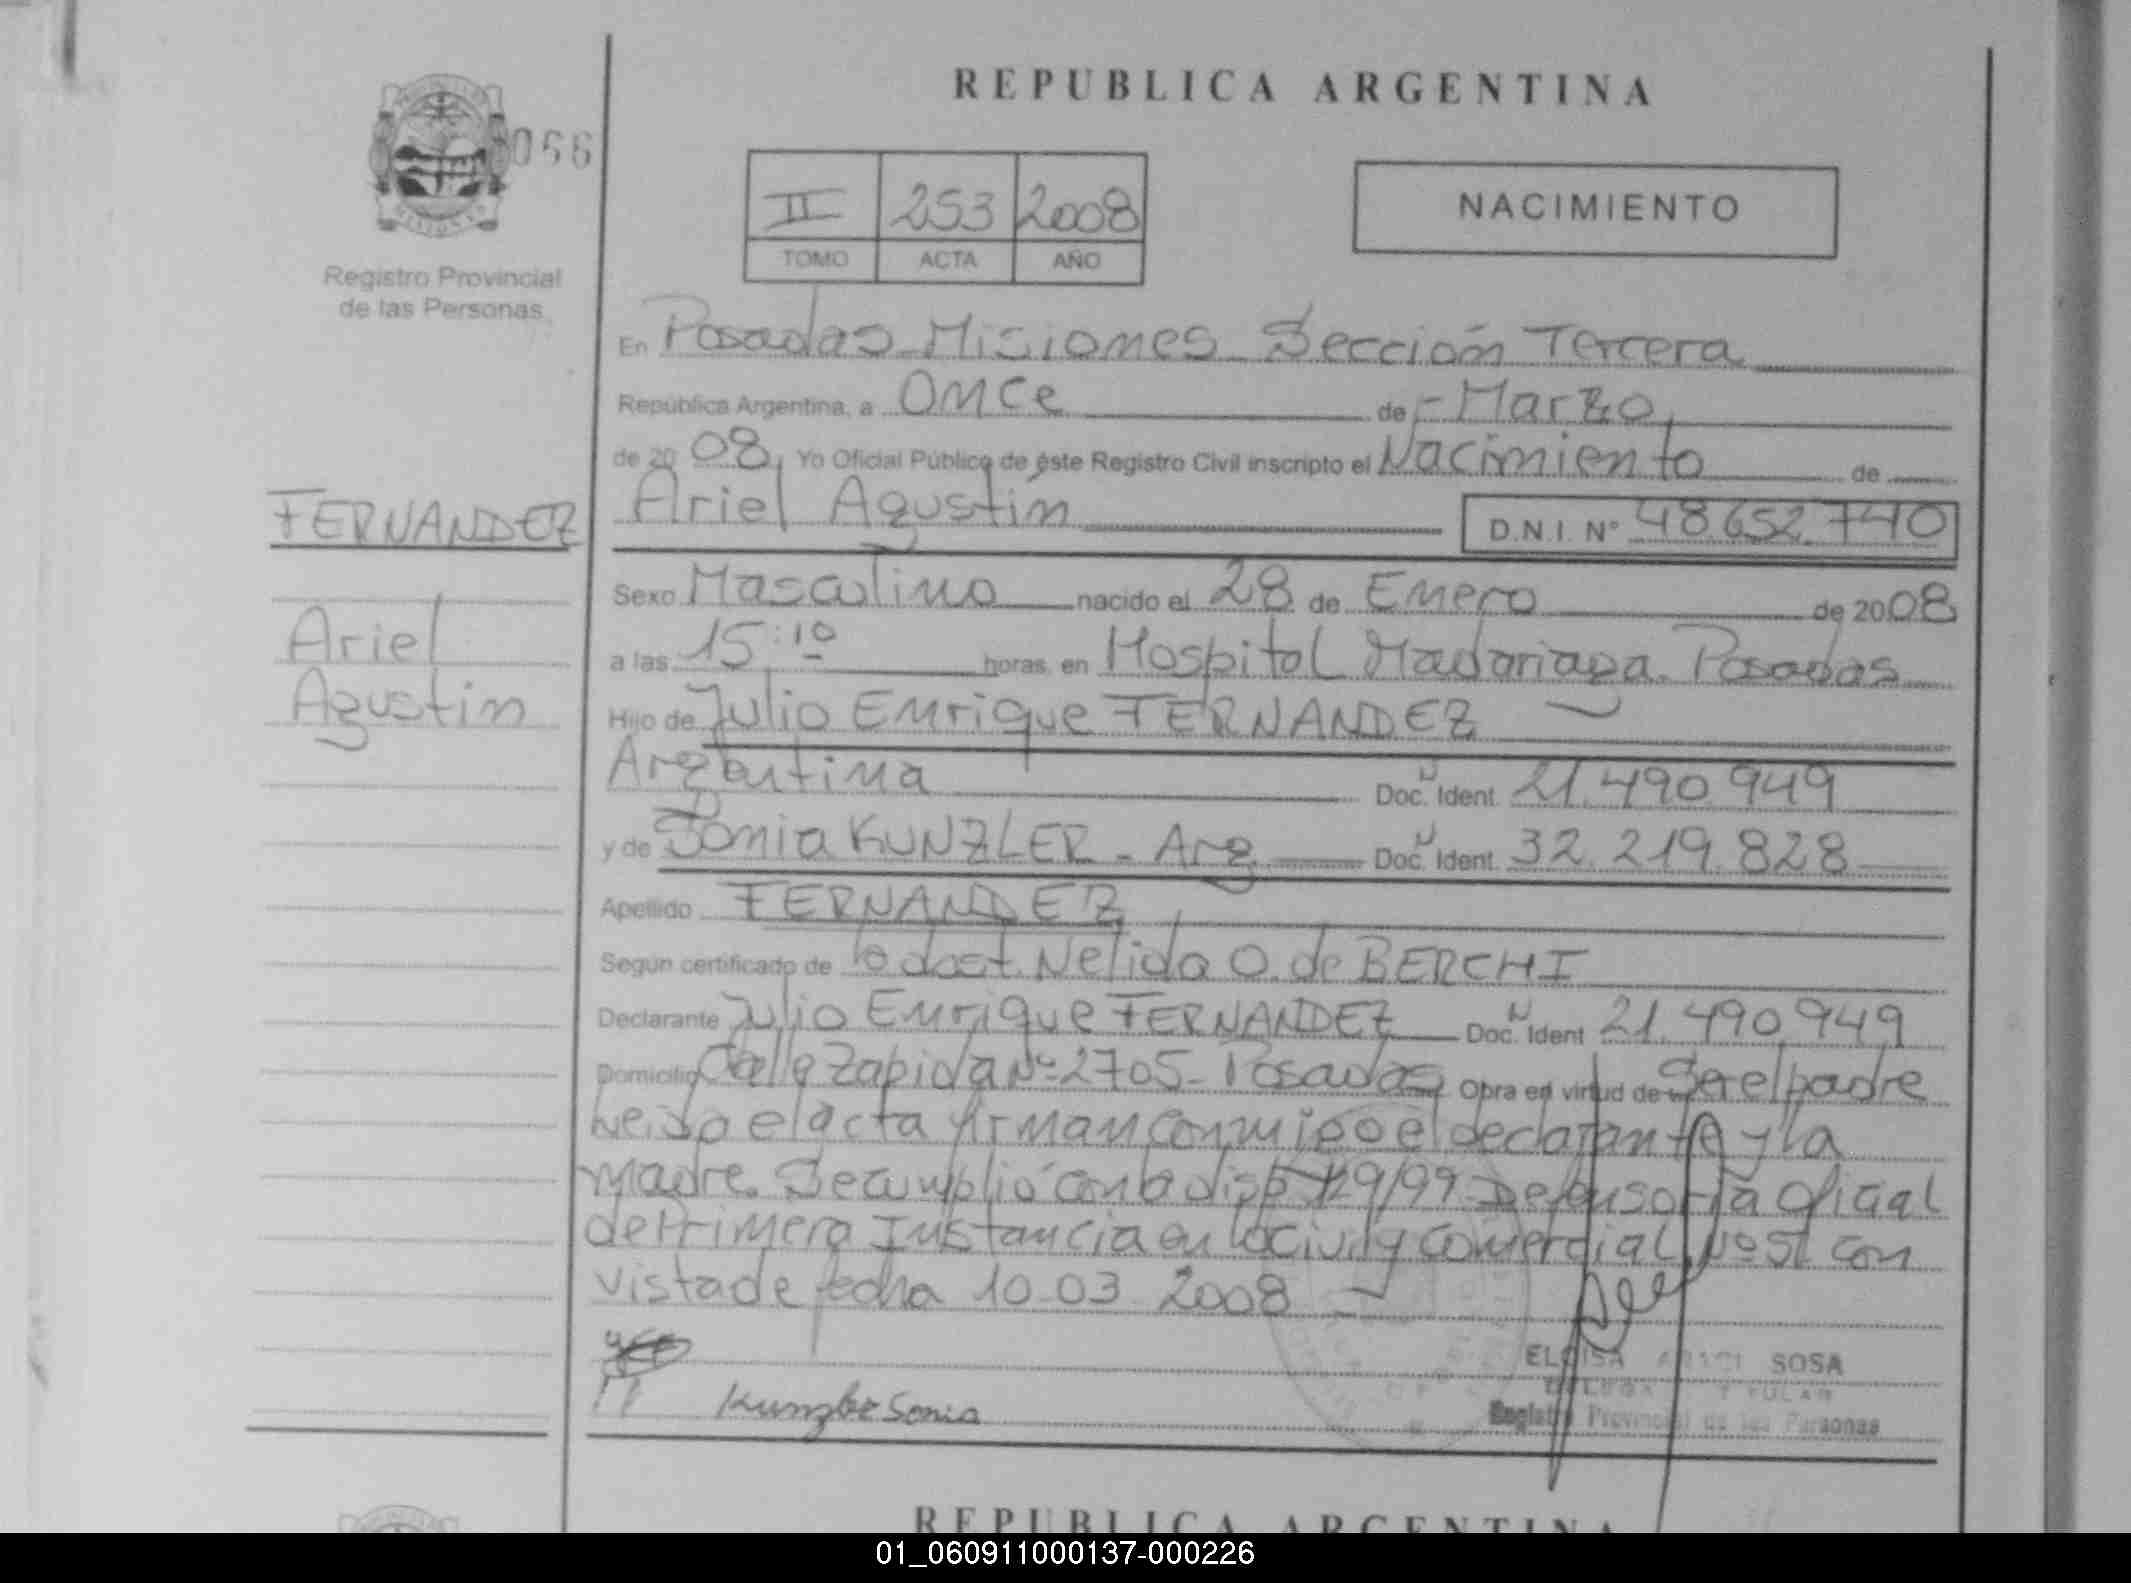 REPUBLICA ARGENTINA
066
II 253 2008
TOMO ACTA AÑO
NACIMIENTO
Registro Provincial
de las Personas
En Posadas Misiones Sección Tercera
República Argentina, a Once de Marzo
de 2008, Yo Oficial Público de éste Registro Civil inscripto el Nacimiento de
FERNANDEZ
Ariel Agustin
Ariel Agustín D.N.I. Nº 48.652.740
Sexo Masculino nacido el 28 de Enero de 2008
a las 15:10 horas, en Hospital Madariaga. Posadas
Hijo de Julio Enrique FERNANDEZ
Argentina Doc. Ident. 21.490.949
y de Sonia KUNZLER - Arg Doc. Ident. 32.219.828
Apellido FERNANDEZ
Según certificado de la obst. Nelida O. de BERCHI
Declarante Julio Enrique FERNANDEZ Doc. Ident 21.490.949
Domicilio Calle Zapiola Nº 2705- Posadas Obra en virtud de Ser el padre
Leida el acta firman conmigo el declarante y la
madre. Se cumplió con la disp 129/99 Defensoría Oficial
de Primera Instancia en lo Civil y Comercial Nº 51 con
vista de fecha 10-03-2008
Kunzler Sonia
ELOISA SOSA
Registro Provincial de las Personas
REPUBLICA ARGENTINA
01_060911000137-000226